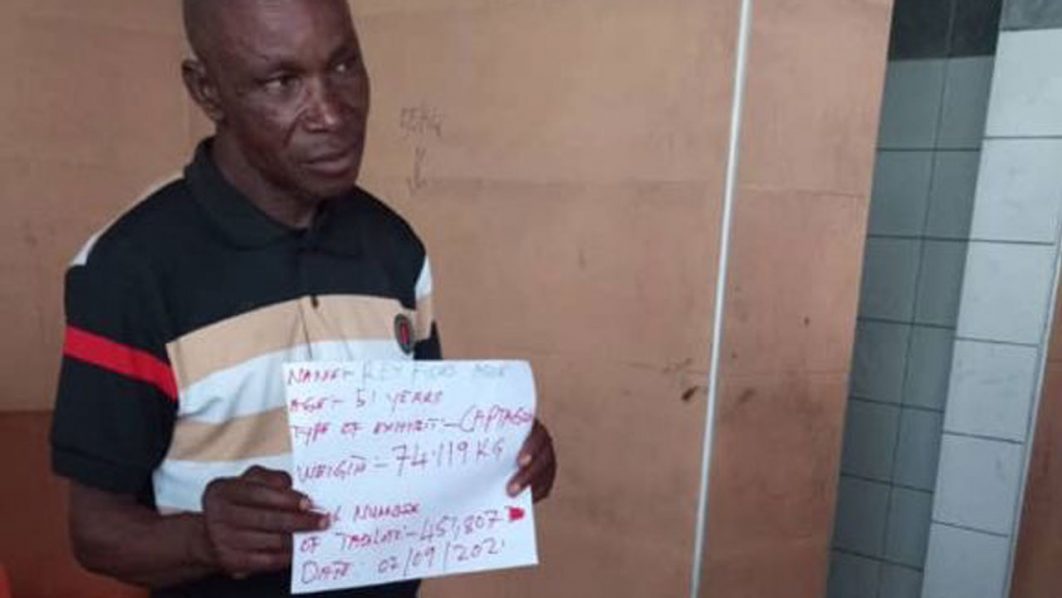 55KG
NAME:-
AGE:- 51 YEARS
TYPE OF EXHIBIT:- CAPTAGO
WEIGHT:- 74.119KG
NUMBER
OF TABLETS:- 451,807
DATE: 02/09/202